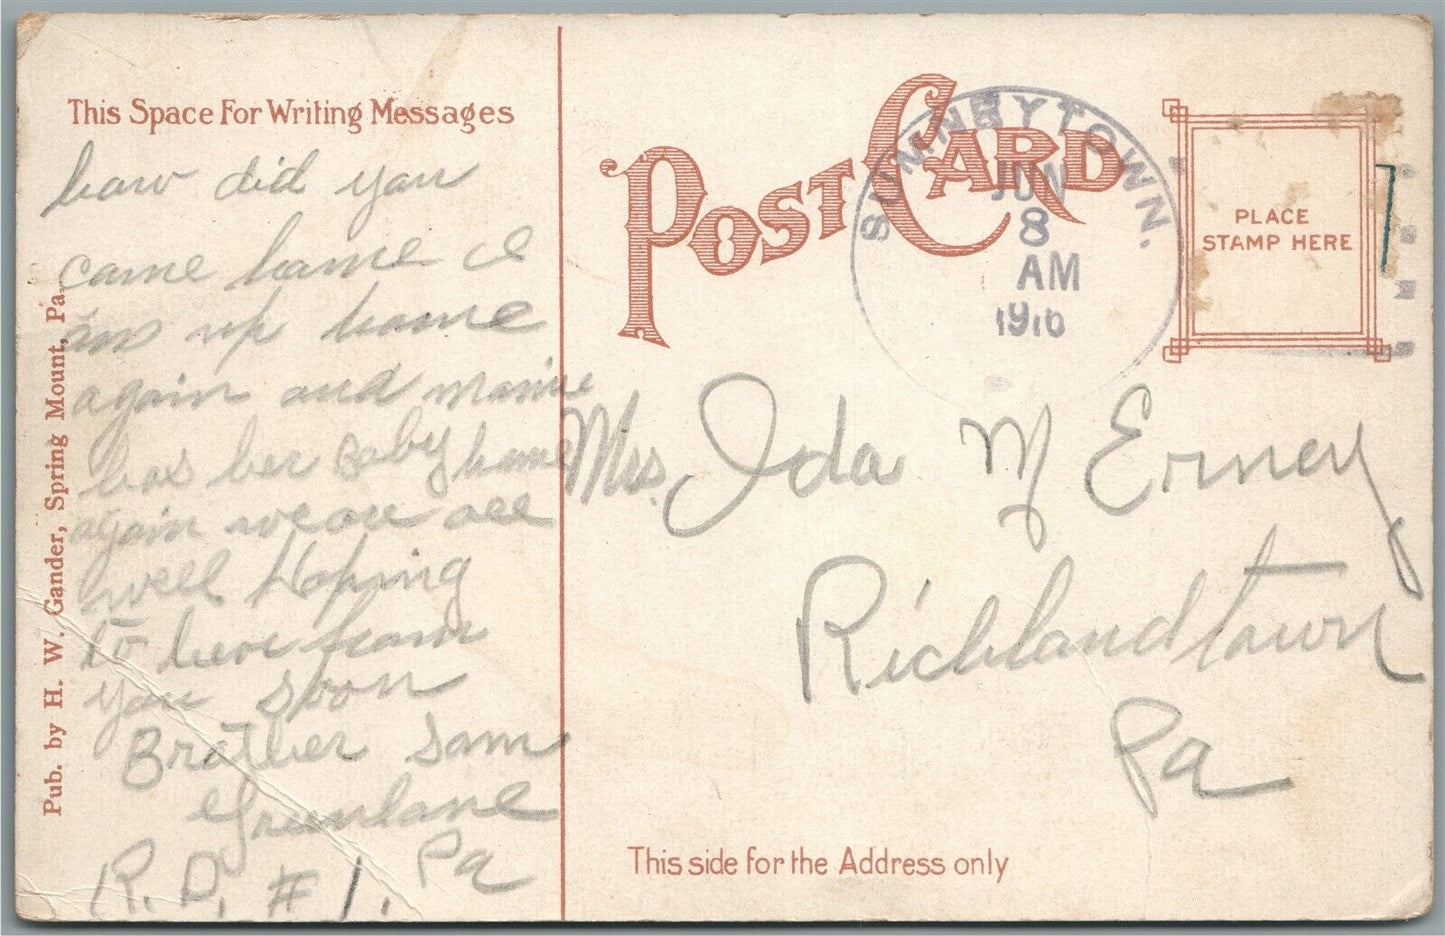 This Space For Writing Messages
how did you
came home I
am up home
again and mamie
has her baby home
again we are all
well Hoping
to here from
you soon
Brother Sam
Greenlane
R. D. # 1. Pa
Pub. by H. W. Gander, Spring Mount, Pa.
POST CARD
SUMNEYTOWN.
JUN
8
AM
1910
PLACE
STAMP HERE
Mrs. Ida M Erney
Richlandtown
Pa
This side for the Address only